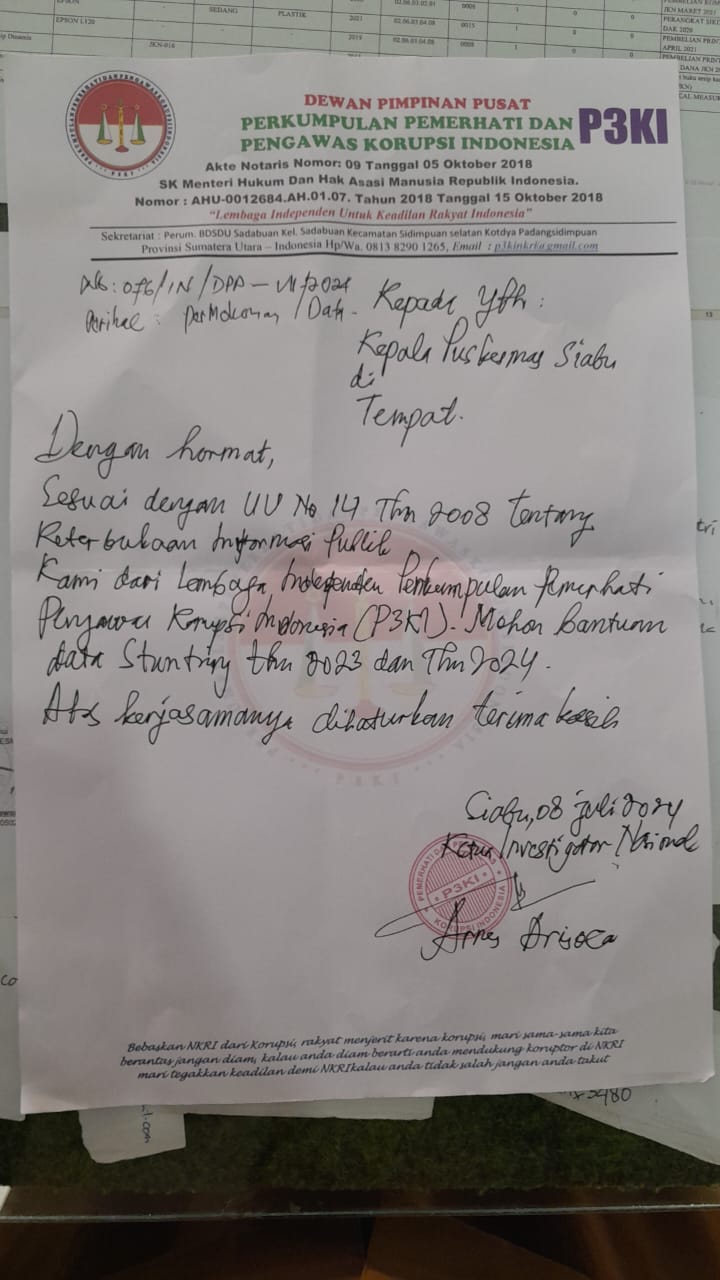 EPSON
SEDANG
PLASTIK
EPSON L120
2021
02.06.03.04.08
0015
1
0
0
JKN MARET 2021
PERANGKAT
DAK 2020
JKN-016
2019
02.06.03.04.08
0008
1
0
0
PEMBELIAN
APRIL 2021
DANA JKN
13
DEWAN PIMPINAN PUSAT
PERKUMPULAN PEMERHATI DAN
PENGAWAS KORUPSI INDONESIA
P3KI
Akte Notaris Nomor: 09 Tanggal 05 Oktober 2018
SK Menteri Hukum Dan Hak Asasi Manusia Republik Indonesia.
Nomor : AHU-0012684.AH.01.07. Tahun 2018 Tanggal 15 Oktober 2018
"Lembaga Independen Untuk Keadilan Rakyat Indonesia"
Sekretariat : Perum. BDSDU Sadabuan Kel. Sadabuan Kecamatan Sidimpuan selatan Kotdya Padangsidimpuan
Provinsi Sumatera Utara – Indonesia Hp/Wa. 0813 8290 1265, Email : p3kinkri@gmail.com
No: 076/IN/DPP-VII/2024
Perihal : Permohonan / Data -
Kepada Yth :
Kepala Puskesmas Siabu
di
Tempat.
Dengan hormat,
Sesuai dengan UU No 14 Thn 2008 Tentang
Keterbukaan Informasi Publik
Kami dari Lembaga Independen Perkumpulan Pemerhati
Pengawas Korupsi Indonesia (P3KI). Mohon bantuan
data Stunting thn 2023 dan Thn 2024.
Atas kerjasamanya dihaturkan terima kasih
Siabu, 08 Juli 2024
Ketua Investigator Nasional
PEMERHATI DAN
P3KI
KORUPSI INDONESIA
Bebaskan NKRI dari Korupsi, rakyat menjerit karena korupsi, mari sama-sama kita
berantas jangan diam, kalau anda diam berarti anda mendukung koruptor di NKRI
mari tegakkan keadilan demi NKRIkalau anda tidak salah jangan anda takut